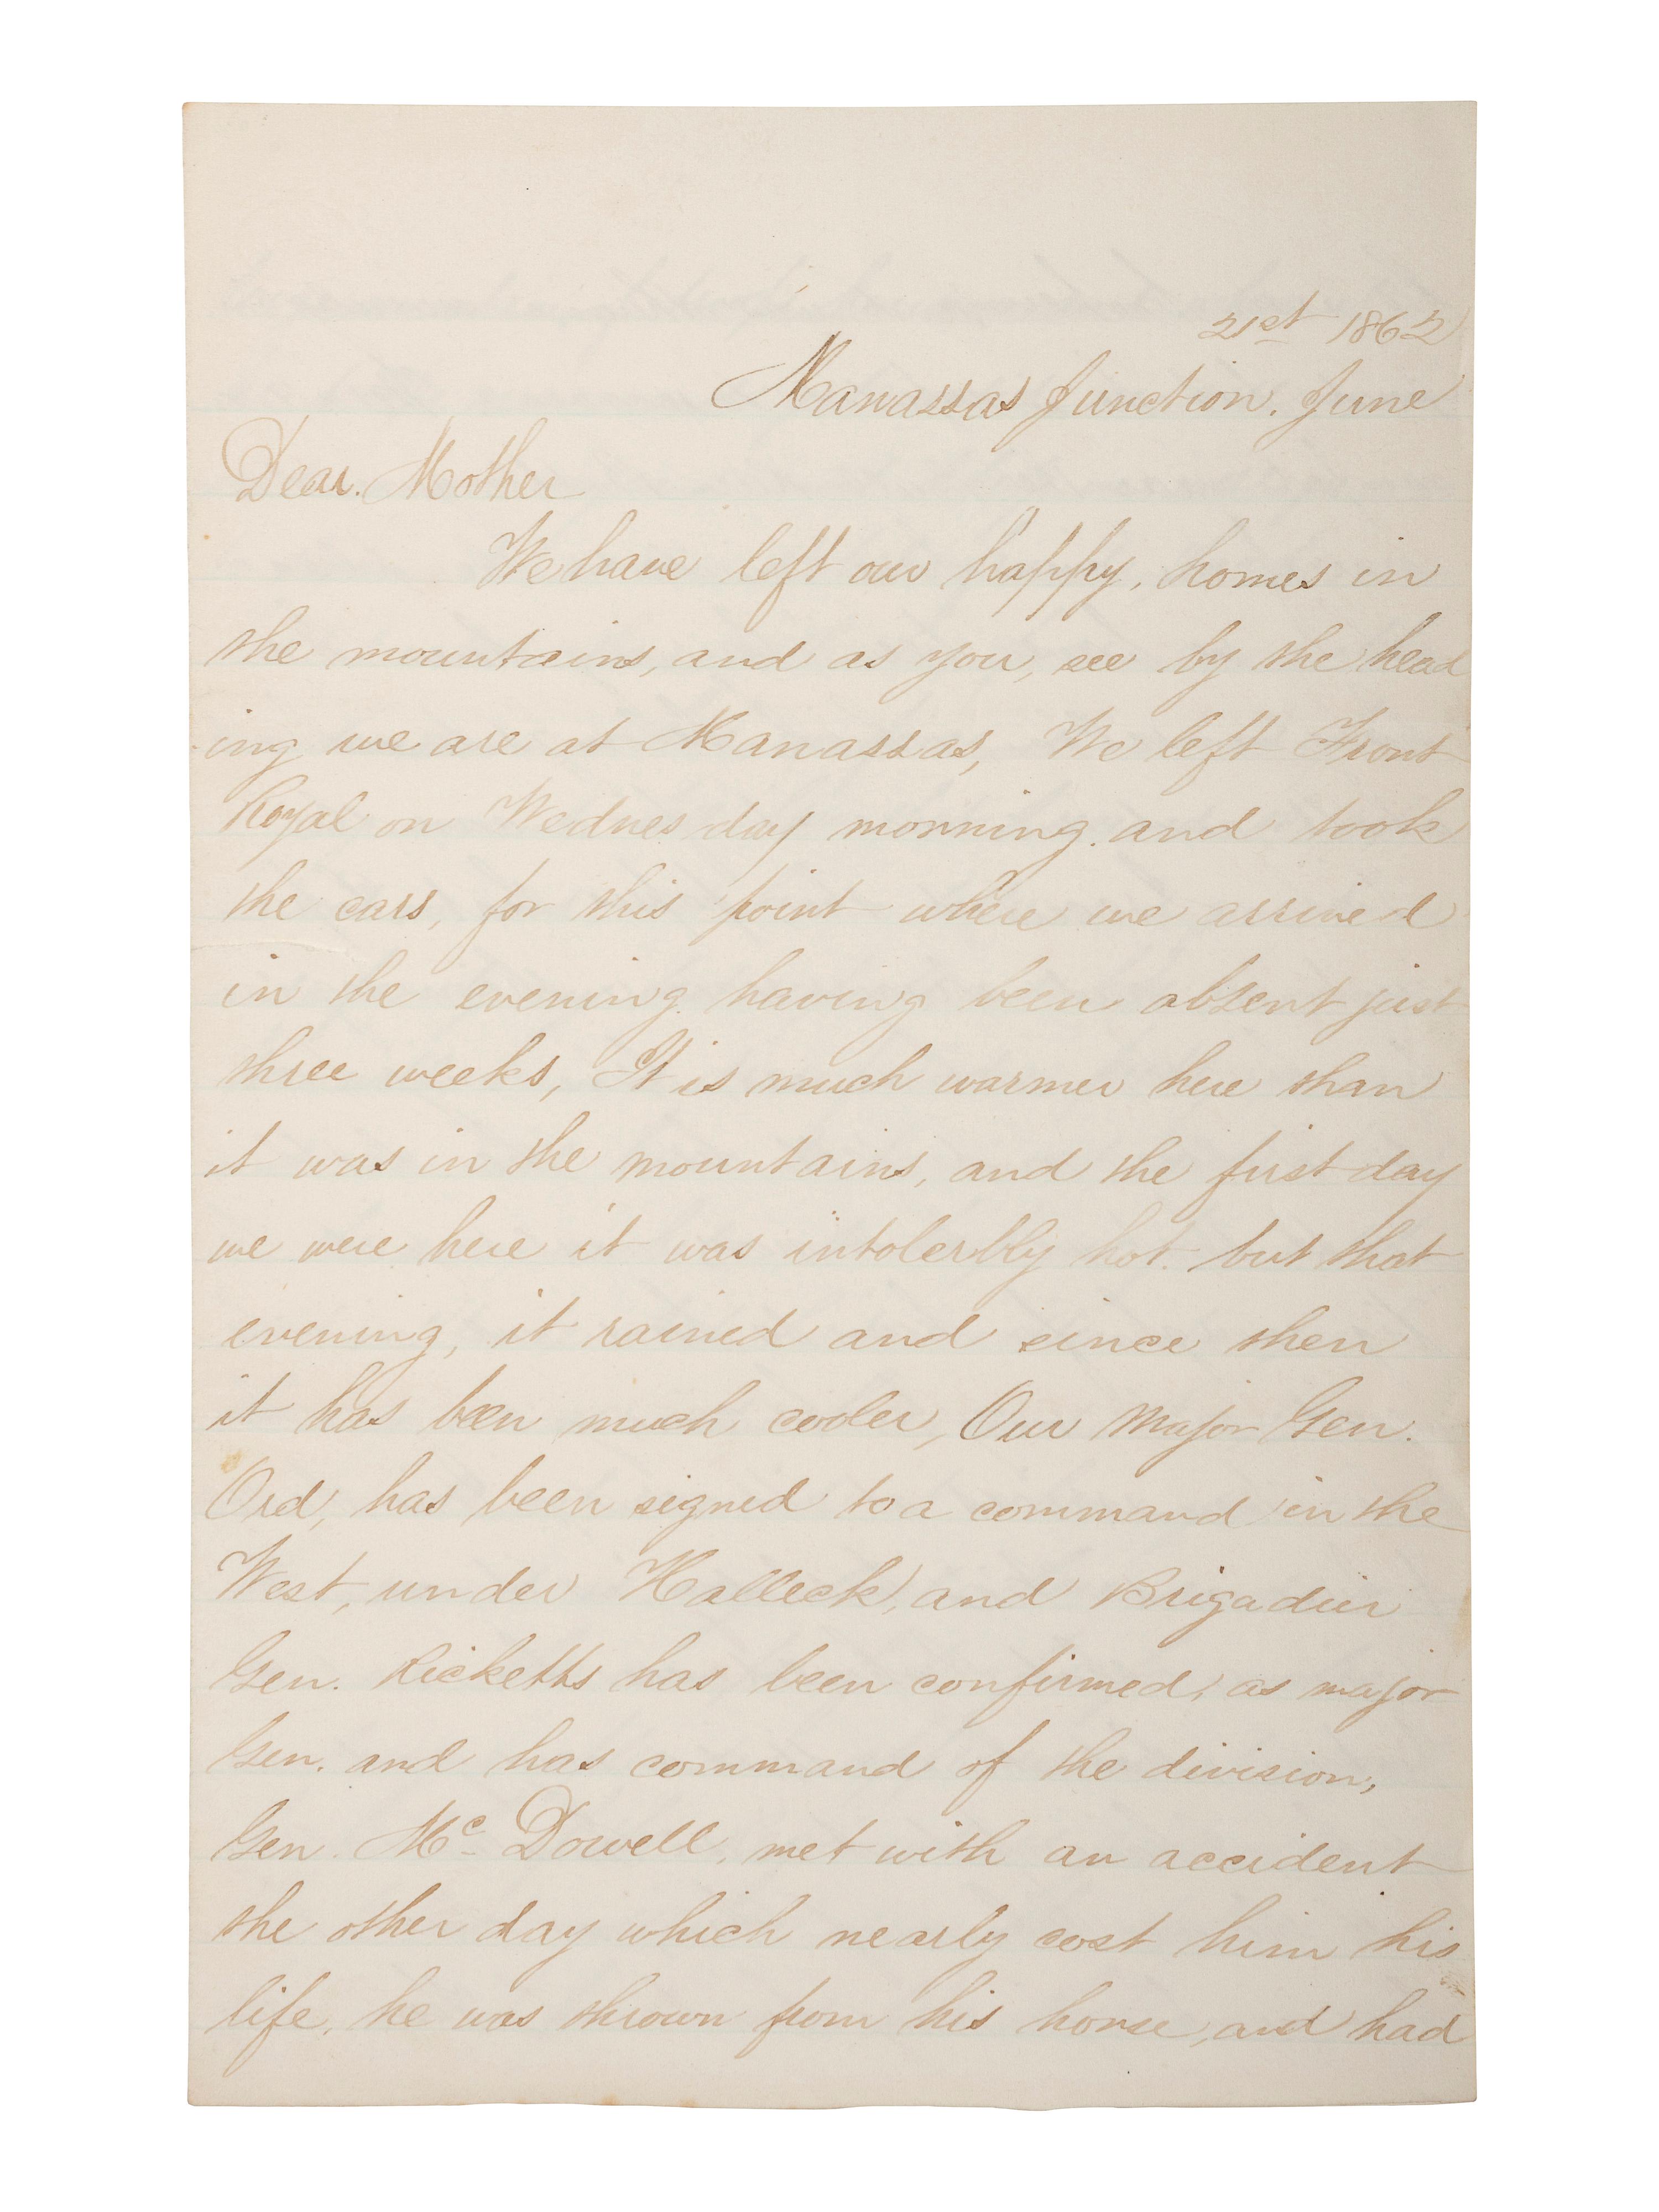 21st 1862
Manassas Junction. June
Dear. Mother
We have left our happy, homes in
the mountains, and as you, see by the head
-ing we are at Manassas, We left Front
Royal on Wednesday morning. and took
the cars, for this point where we arrived
in the evening. having been absent just
three weeks, It is much warmer here than
it was in the mountains, and the first day
we were here it was intolerbly hot. but that
evening, it rained and since then
it has been much cooler, Our Major Gen.
Ord, has been signed to a command in the
West, under Halleck, and Brigadier
Gen. Ricketts has been confirmed, as major
Gen. and has command of the division,
Gen. Mc Dowell, met with an accident
the other day which nearly cost him his
life, he was thrown from his horse, and had